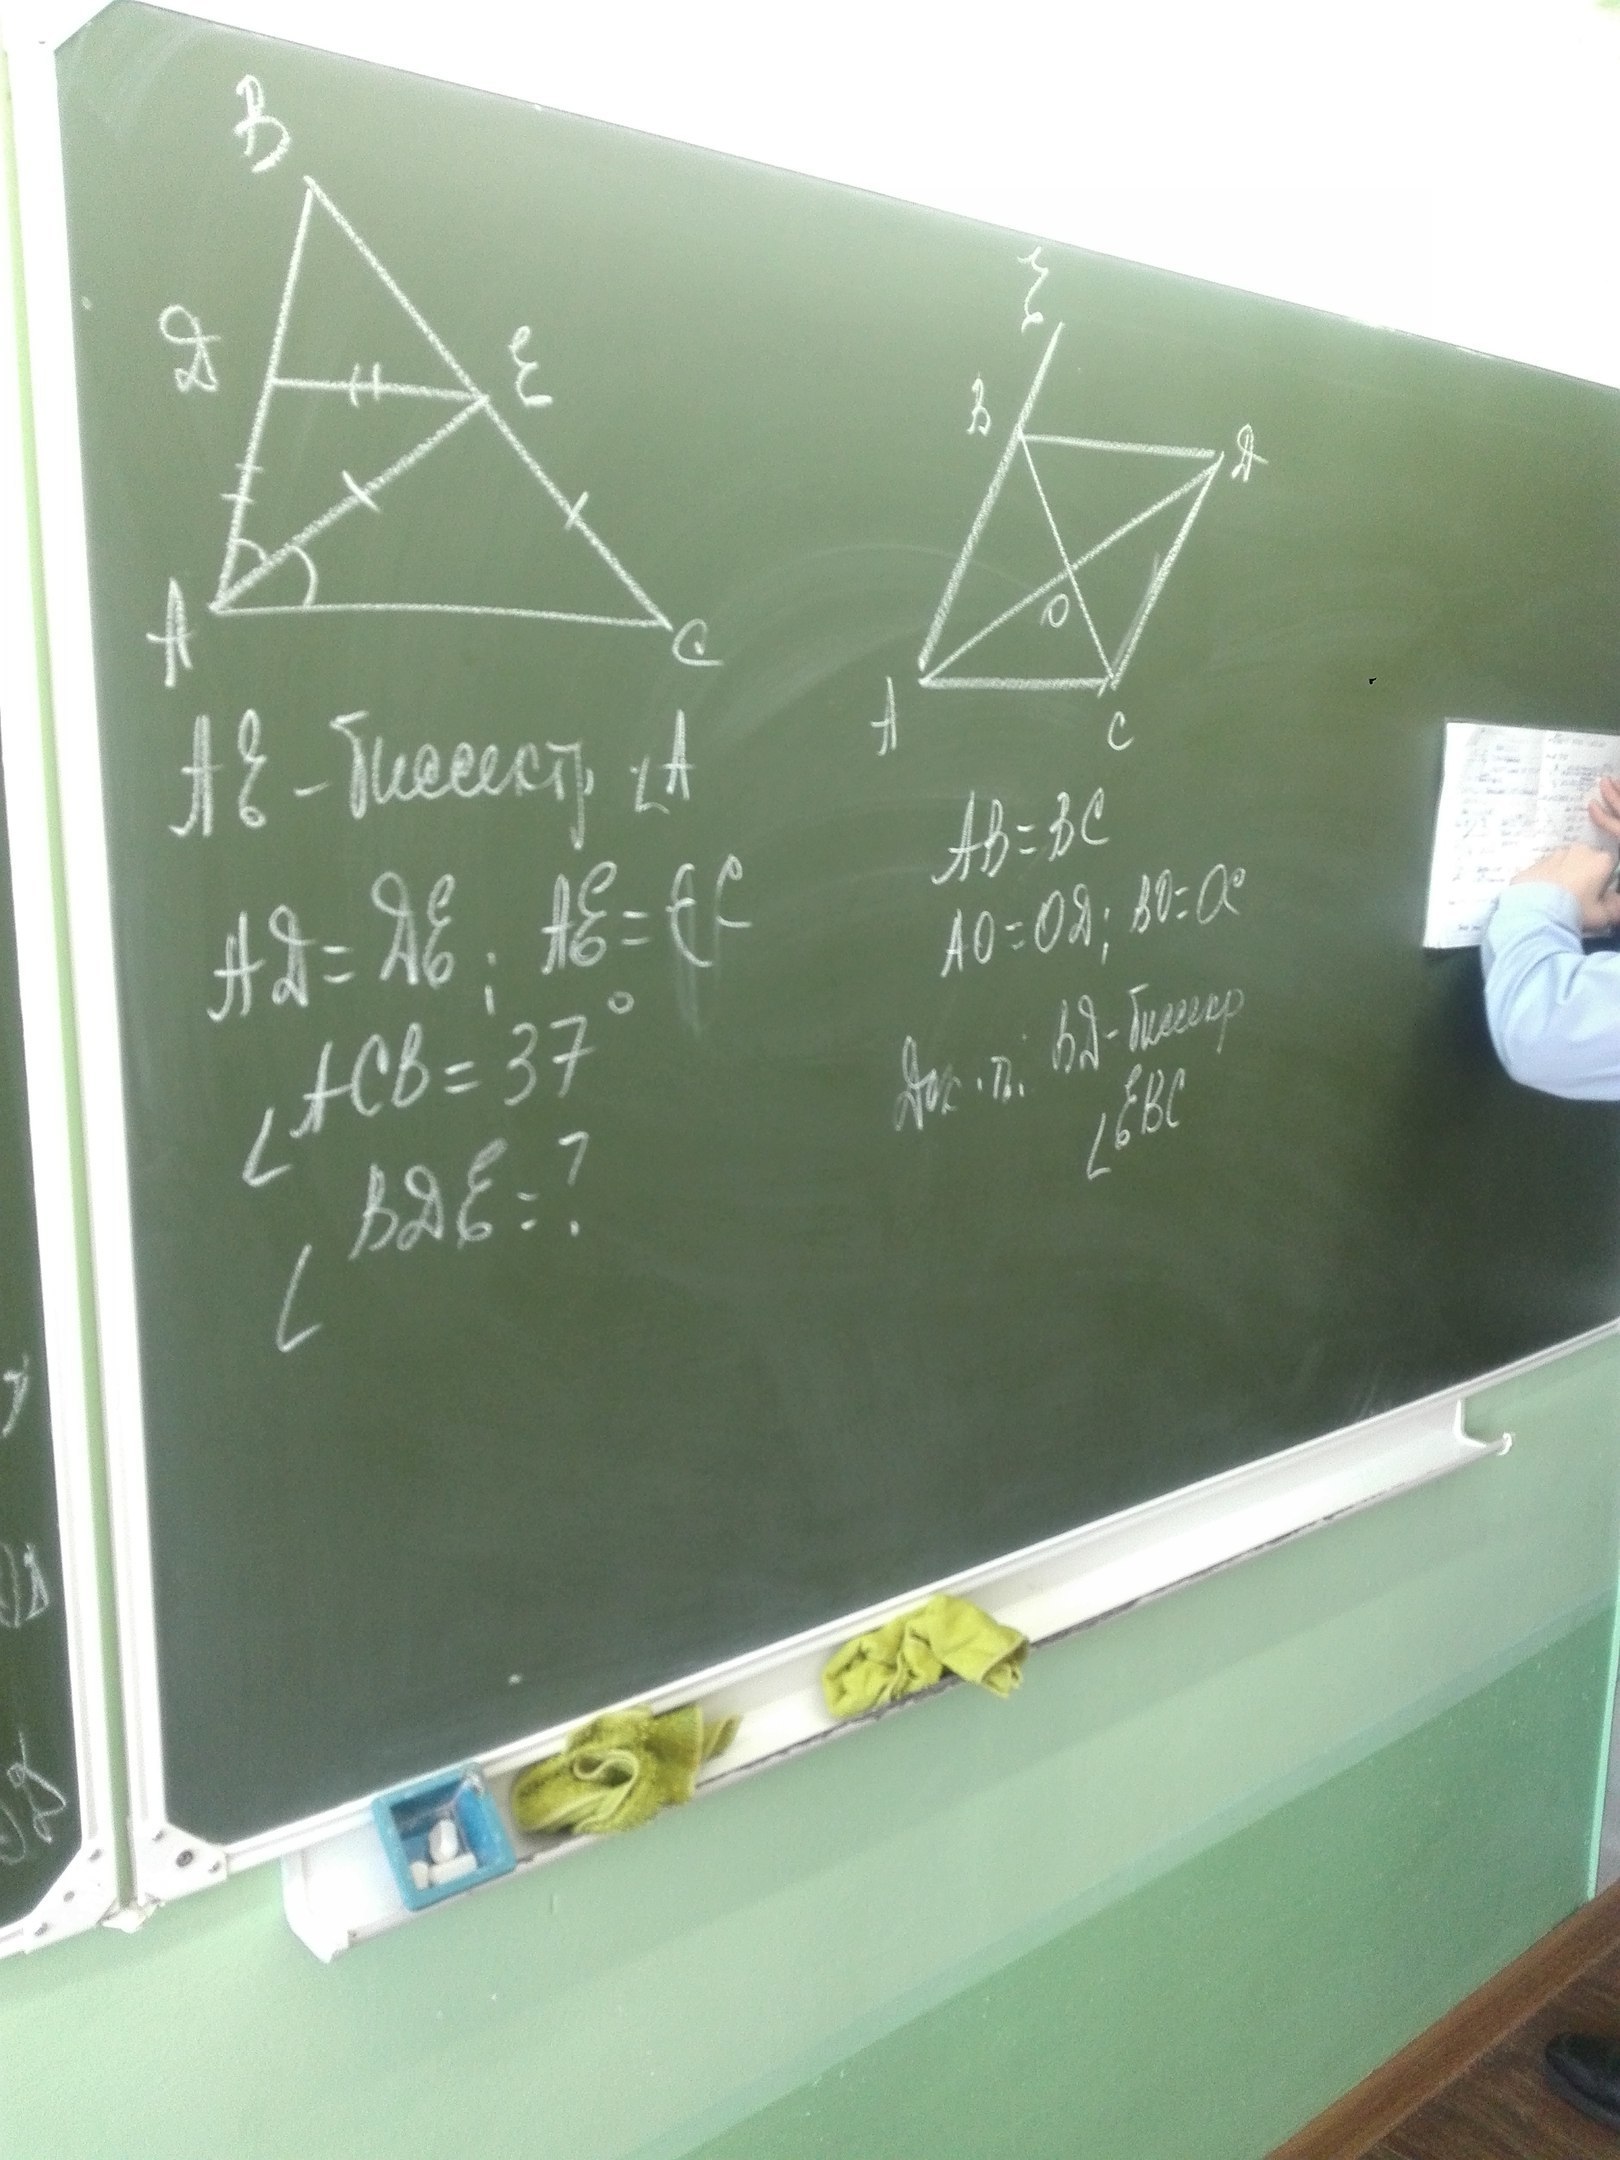 B
D
E
A
C
AE - биссектр. ∠A
AD = DE ; AE = EC
∠ACB = 37°
∠BDE = ?
E
B
D
O
A
C
AB = BC
AO = OD; BO = OC
Док. п.: BD - биссектр
∠EBC